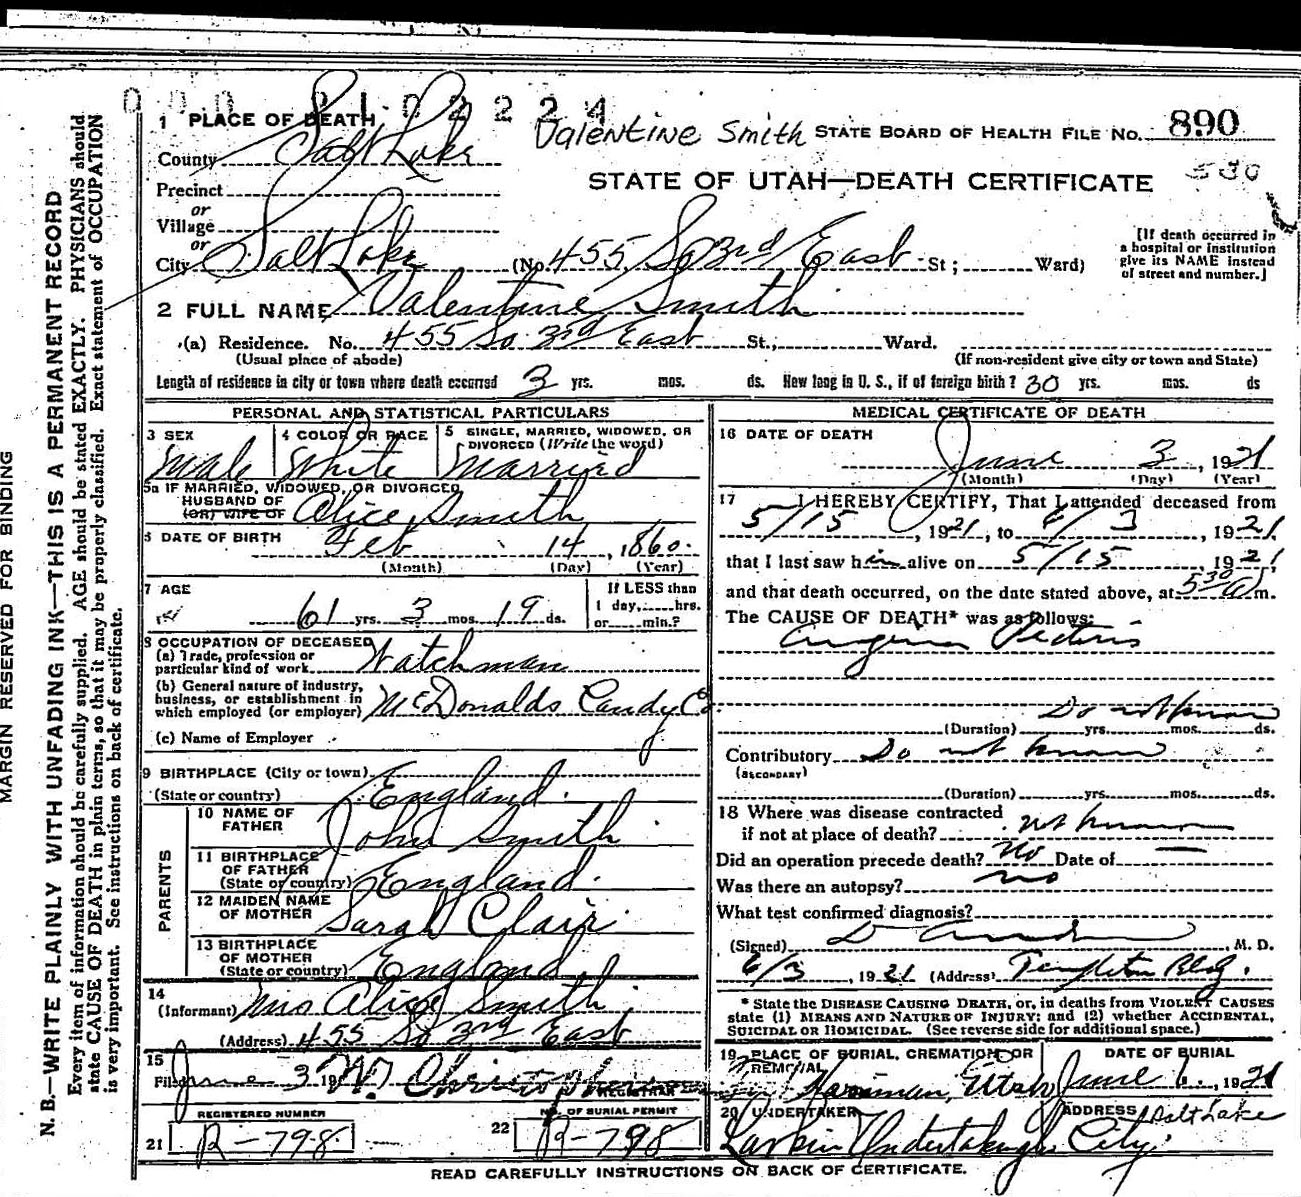 MARGIN RESERVED FOR BINDING
N. B.—WRITE PLAINLY WITH UNFADING INK—THIS IS A PERMANENT RECORD
Every item of information should be carefully supplied. AGE should be stated EXACTLY. PHYSICIANS should
state CAUSE OF DEATH in plain terms, so that it may be properly classified. Exact statement of OCCUPATION
is very important. See instructions on back of certificate.
1 PLACE OF DEATH
Valentine Smith STATE BOARD OF HEALTH FILE NO. 890
530
County Salt Lake
STATE OF UTAH—DEATH CERTIFICATE
Precinct
or
Village
or
City Salt Lake (No. 455 So 3rd East St; Ward)
[If death occurred in
a hospital or institution
give its NAME instead
of street and number.]
2 FULL NAME Valentine Smith
(a) Residence. No. 455 So. 3rd East St., Ward.
(Usual place of abode) (If non-resident give city or town and State)
Length of residence in city or town where death occurred 3 yrs. mos. ds. How long in U. S., if of foreign birth? 30 yrs. mos. ds
PERSONAL AND STATISTICAL PARTICULARS
3 SEX Male
4 COLOR OR RACE White
5 SINGLE, MARRIED, WIDOWED, OR DIVORCED (Write the word) Married
5a IF MARRIED, WIDOWED, OR DIVORCED
HUSBAND OF
(OR) WIFE OF Alice Smith
6 DATE OF BIRTH Feb 14, 1860.
(Month) (Day) (Year)
7 AGE 61 yrs. 3 mos. 19 ds.
If LESS than
1 day, hrs.
or min.?
8 OCCUPATION OF DECEASED
(a) Trade, profession or
particular kind of work Watchman
(b) General nature of industry,
business, or establishment in
which employed (or employer) McDonalds Candy Co.
(c) Name of Employer
9 BIRTHPLACE (City or town)
(State or country) England.
PARENTS
10 NAME OF
FATHER John Smith
11 BIRTHPLACE
OF FATHER
(State or country) England.
12 MAIDEN NAME
OF MOTHER Sarah Clair
13 BIRTHPLACE
OF MOTHER
(State or country) England
14
(Informant) Mrs Alice Smith
(Address) 455 So 3rd East
15
Filed June 3 19 W. Christopherson
REGISTRAR
REGISTERED NUMBER
21 R-798
NO. OF BURIAL PERMIT
22 R-798
MEDICAL CERTIFICATE OF DEATH
16 DATE OF DEATH
June 3, 1921
(Month) (Day) (Year)
17 I HEREBY CERTIFY, That I attended deceased from
5/15, 1921, to 6/3, 1921,
that I last saw him alive on 5/15, 1921,
and that death occurred, on the date stated above, at 5 30 a m.
The CAUSE OF DEATH* was as follows:
Angina Pectoris
Do not know
(Duration) yrs. mos. ds.
Contributory Do not know
(SECONDARY)
(Duration) yrs. mos. ds.
18 Where was disease contracted
if not at place of death? not known
Did an operation precede death? No Date of —
Was there an autopsy? no
What test confirmed diagnosis?
(Signed), M. D.
6/3, 1921 (Address) Templeton Bldg.
* State the DISEASE CAUSING DEATH, or, in deaths from VIOLENT CAUSES
state (1) MEANS AND NATURE OF INJURY; and (2) whether ACCIDENTAL,
SUICIDAL OR HOMICIDAL. (See reverse side for additional space.)
19 PLACE OF BURIAL, CREMATION, OR
REMOVAL
Utah
DATE OF BURIAL
June 6, 1921
20 UNDERTAKER
Larkin Undertaking Co.
ADDRESS Salt Lake
City.
READ CAREFULLY INSTRUCTIONS ON BACK OF CERTIFICATE.